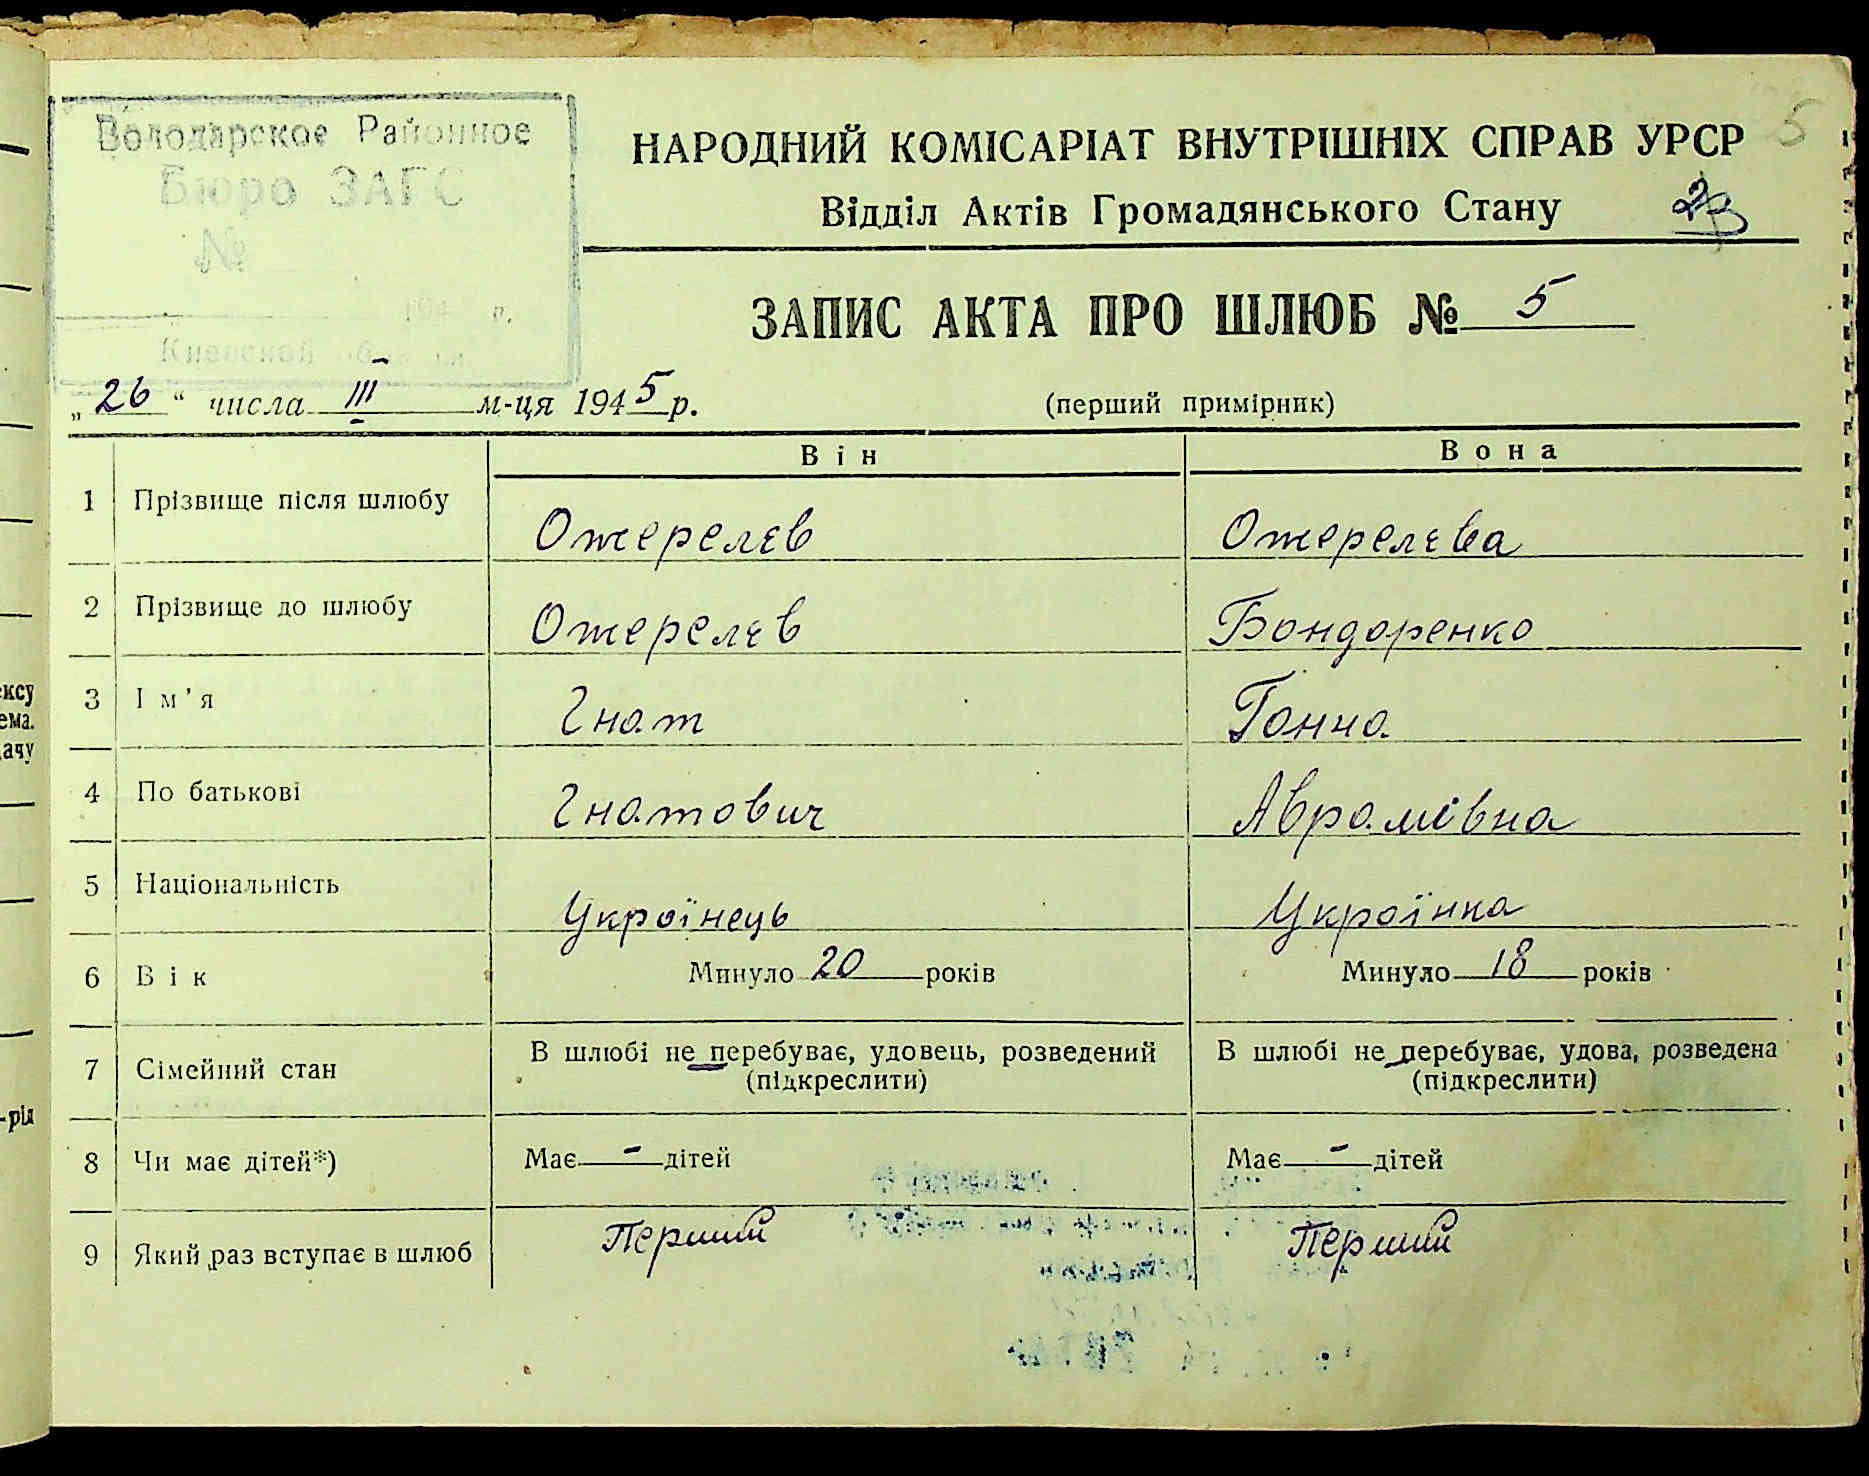 Володарское Районное
Бюро ЗАГС
№
194 г.
Киевской
НАРОДНИЙ КОМІСАРІАТ ВНУТРІШНІХ СПРАВ УРСР
5
Відділ Актів Громадянського Стану
ЗАПИС АКТА ПРО ШЛЮБ № 5
„26“ числа III м-ця 1945 р.
(перший примірник)
Він Вона
1 Прізвище після шлюбу Ожерелєв Ожерелєва
2 Прізвище до шлюбу Ожерелєв Бондоренко
3 Ім'я Гнат Ганна
4 По батькові Гнатович Аврамівна
5 Національність Українець Українка
6 Вік Минуло 20 років Минуло 18 років
7 Сімейний стан В шлюбі не перебуває, удовець, розведений В шлюбі не перебуває, удова, розведена
(підкреслити) (підкреслити)
8 Чи має дітей*) Має - дітей Має - дітей
9 Який раз вступає в шлюб Перший Перший
ксу
ема.
ачу
-ріл